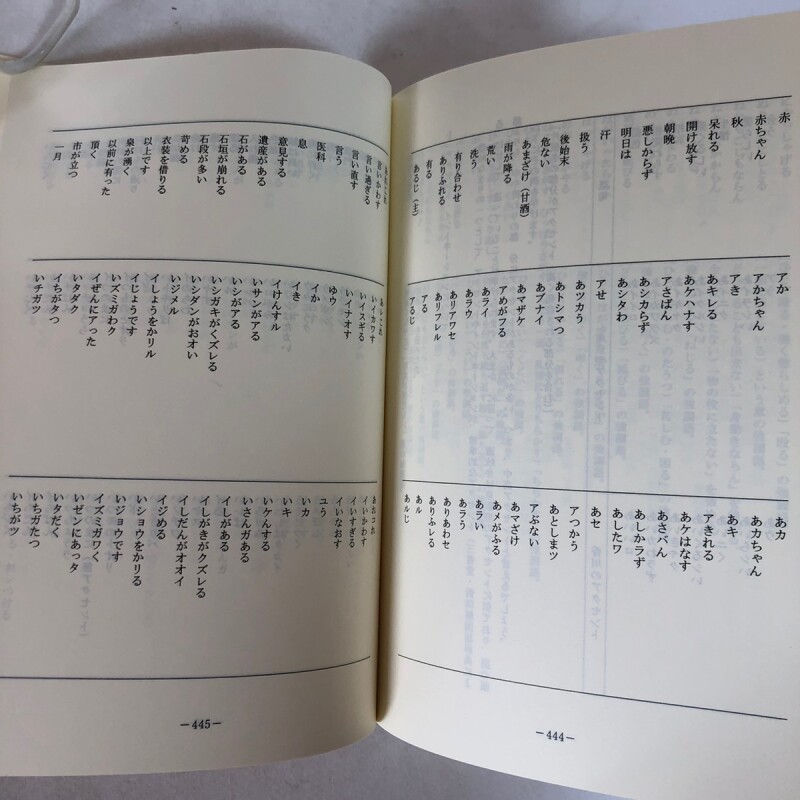 赤
赤ちゃん
秋
呆れる
開け放す
朝晩
悪しからず
明日は
汗
扱う
後始末
危ない
あまざけ（甘酒）
雨が降る
荒い
洗う
有り合わせ
ありふれる
有る
あるじ（主）
アか
アかちゃん
アき
あキレる
あケハナす
アさばん
あシカらず
あシタわ
アせ
あツカう
あトシマつ
あブナイ
あマザケ
アめがフる
あライ
あラウ
あリアワセ
あリフレル
アる
アるじ
あカ
あカちゃん
あキ
アきれる
あケはなす
あさバん
あしカラず
あしたワ
あセ
アつかう
あとしまツ
アぶない
あマざけ
あメがふる
あラい
あラう
ありあわせ
ありふレる
あル
あルじ
—444—
言いかわす
言い過ぎる
言い直す
言う
医科
息
意見する
遺産がある
石がある
石垣が崩れる
石段が多い
苛める
衣装を借りる
以上です
泉が湧く
以前に有った
頂く
市が立つ
一月
いイカワす
いイスギる
いイナオす
ゆウ
イか
イき
イけんすル
いサンがアる
いシがアる
いシガキがくズレる
いシダンがおオい
いジメル
イしょうをかリル
イじょうです
いズミガわク
イぜんにアった
いタダク
イちがタつ
いチガツ
イいかわす
イいすぎる
イいなおす
ユう
いカ
いキ
いケんする
いさんガある
イしがある
イしがきがクズレる
イしだんがオオイ
イジめる
いショウをかりる
いジョウです
イズミガワく
いゼンにあッタ
いタだく
いちガたつ
いちがツ
—445—